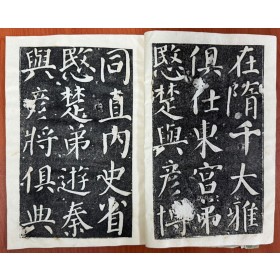 在隋与大雅
俱仕東宮弟
愍楚與彥博
同直內史省
愍楚弟遊秦
與彥將俱典